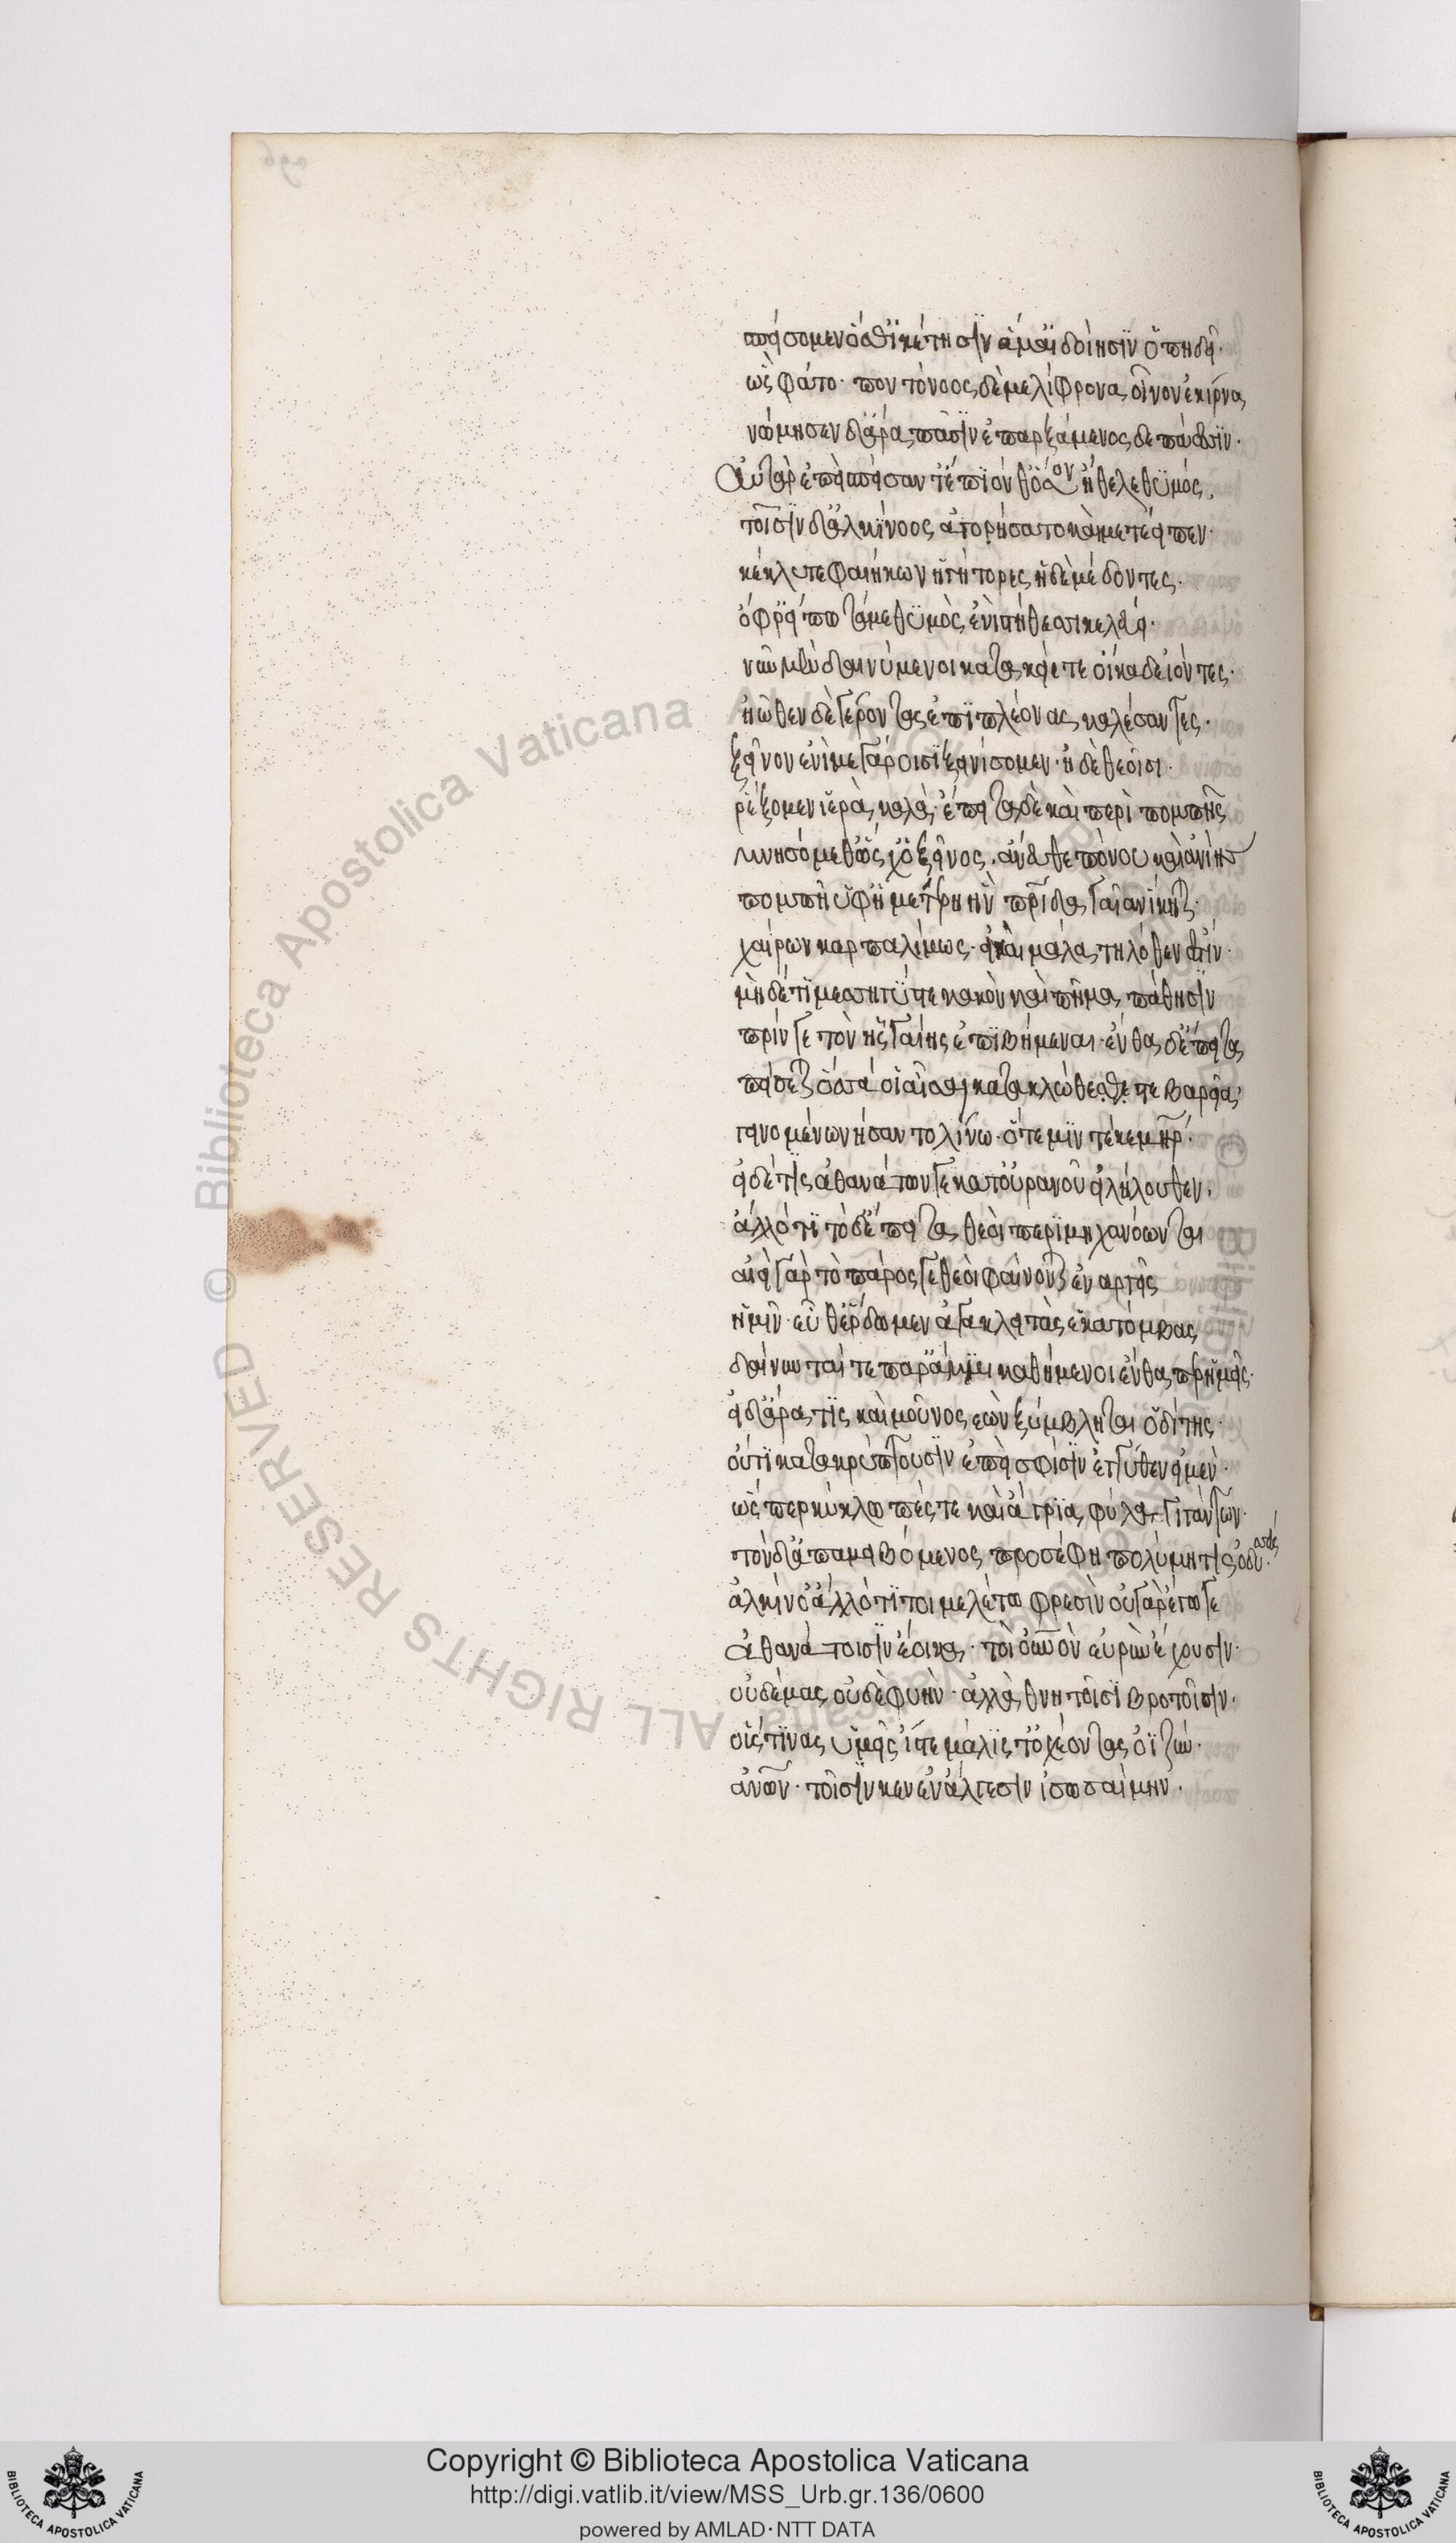 σπείσομεν ὅσθ' ἱκέτησιν ἅμ' αἰδοίησιν ὀπηδεῖ.
ὣς φάτο. ποντόνοος δὲ μελίφρονα οἶνον ἐκίρνα
νώμησεν δ' ἄρα πᾶσιν ἐπαρξάμενος δεπάεσσιν.
Αὐτὰρ ἐπεὶ σπεῖσαν τ' ἔπιόν θ' ὅσον ἤθελε θυμός.
τοῖσιν δ' ἀλκίνοος ἀγορήσατο καὶ μετέειπεν.
κέκλυτε φαιήκων ἡγήτορες ἠδὲ μέδοντες.
ὄφρ' εἴπω τά με θυμὸς ἐνὶ στήθεσσι κελεύει.
νῦν μὲν δαινύμενοι κατακείετε οἴκαδε ἰόντες.
ἠῶθεν δὲ γέροντας ἐπὶ πλέονας καλέσαντες.
ξεῖνον ἐνὶ μεγάροισι ξεινίσομεν. ἠδὲ θεοῖσι.
ῥέξομεν ἱερὰ καλά. ἔπειτα δὲ καὶ περὶ πομπῆς
μνησόμεθ' ὥς χ' ὁ ξεῖνος. ἄνευθε πόνου καὶ ἀνίης
πομπῇ ὑφ' ἡμετέρῃ ἣν πρίδα γαῖαν ἵκηται.
χαίρων καρπαλίμως. εἰ καὶ μάλα τηλόθεν ἐστίν.
μὴ δέ τι μεσσηγύς τε κακὸν καὶ πῆμα πάθησιν
πρίν γε τὸν ἧς γαίης ἐπιβήμεναι. ἔνθα δ' ἔπειτα
πείσεται ὅσσά οἱ αἶσα κατακλώθεσθέ τε βαρεῖαι
γεινομένων νήσαντο λίνω. ὅτε μιν τέκε μηρ.
εἰ δέ τις ἀθανάτων γε κατ' οὐρανοῦ εἰλήλουθεν.
ἄλλό τι τὸ δ' ἔπειτα θεοὶ περιμηχανόωνται
αἰεὶ γὰρ τὸ πάρος γε θεοὶ φαίνονται ἐναργεῖς
ἡμῖν. εὖθ' ἔρδωμεν ἀγακλειτὰς ἑκατόμβας
δαίνυνταί τε παρ' ἄμμι καθήμενοι ἔνθα περ ἡμεῖς.
εἰ δ' ἄρα τις καὶ μοῦνος ἐὼν ξύμβληται ὁδίτης.
οὔτι κατακρύπτουσιν ἐπεὶ σφισιν ἐγγύθεν εἰμέν.
ὥς περ κύκλωπές τε καὶ ἄγρια φῦλα γιγάντων.
τὸν δ' ἀπαμειβόμενος προσέφη πολύμητις ὀδυσσεύς.
ἀλκίνο' ἄλλό τί τοι μελέτω φρεσὶν οὐ γὰρ ἔγωγε
ἀθανάτοισιν ἔοικα. τοὶ οὐνὸν εὐρὺν ἔχουσιν.
οὐ δέμας οὐδὲ φυήν. ἀλλὰ θνητοῖσι βροτοῖσιν.
οὕς τινας ὑμεῖς ἴστε μάλιστ' ὀχέοντας ὀϊζύν.
ἀνῶν. τοῖσίν κεν ἐν ἄλγεσιν ἰσωσαίμην.
Copyright © Biblioteca Apostolica Vaticana
http://digi.vatlib.it/view/MSS_Urb.gr.136/0600
powered by AMLAD·NTT DATA
BIBLIOTECA APOSTOLICA VATICANA
BIBLIOTECA APOSTOLICA VATICANA
© Biblioteca Apostolica Vaticana ALL RIGHTS RESERVED